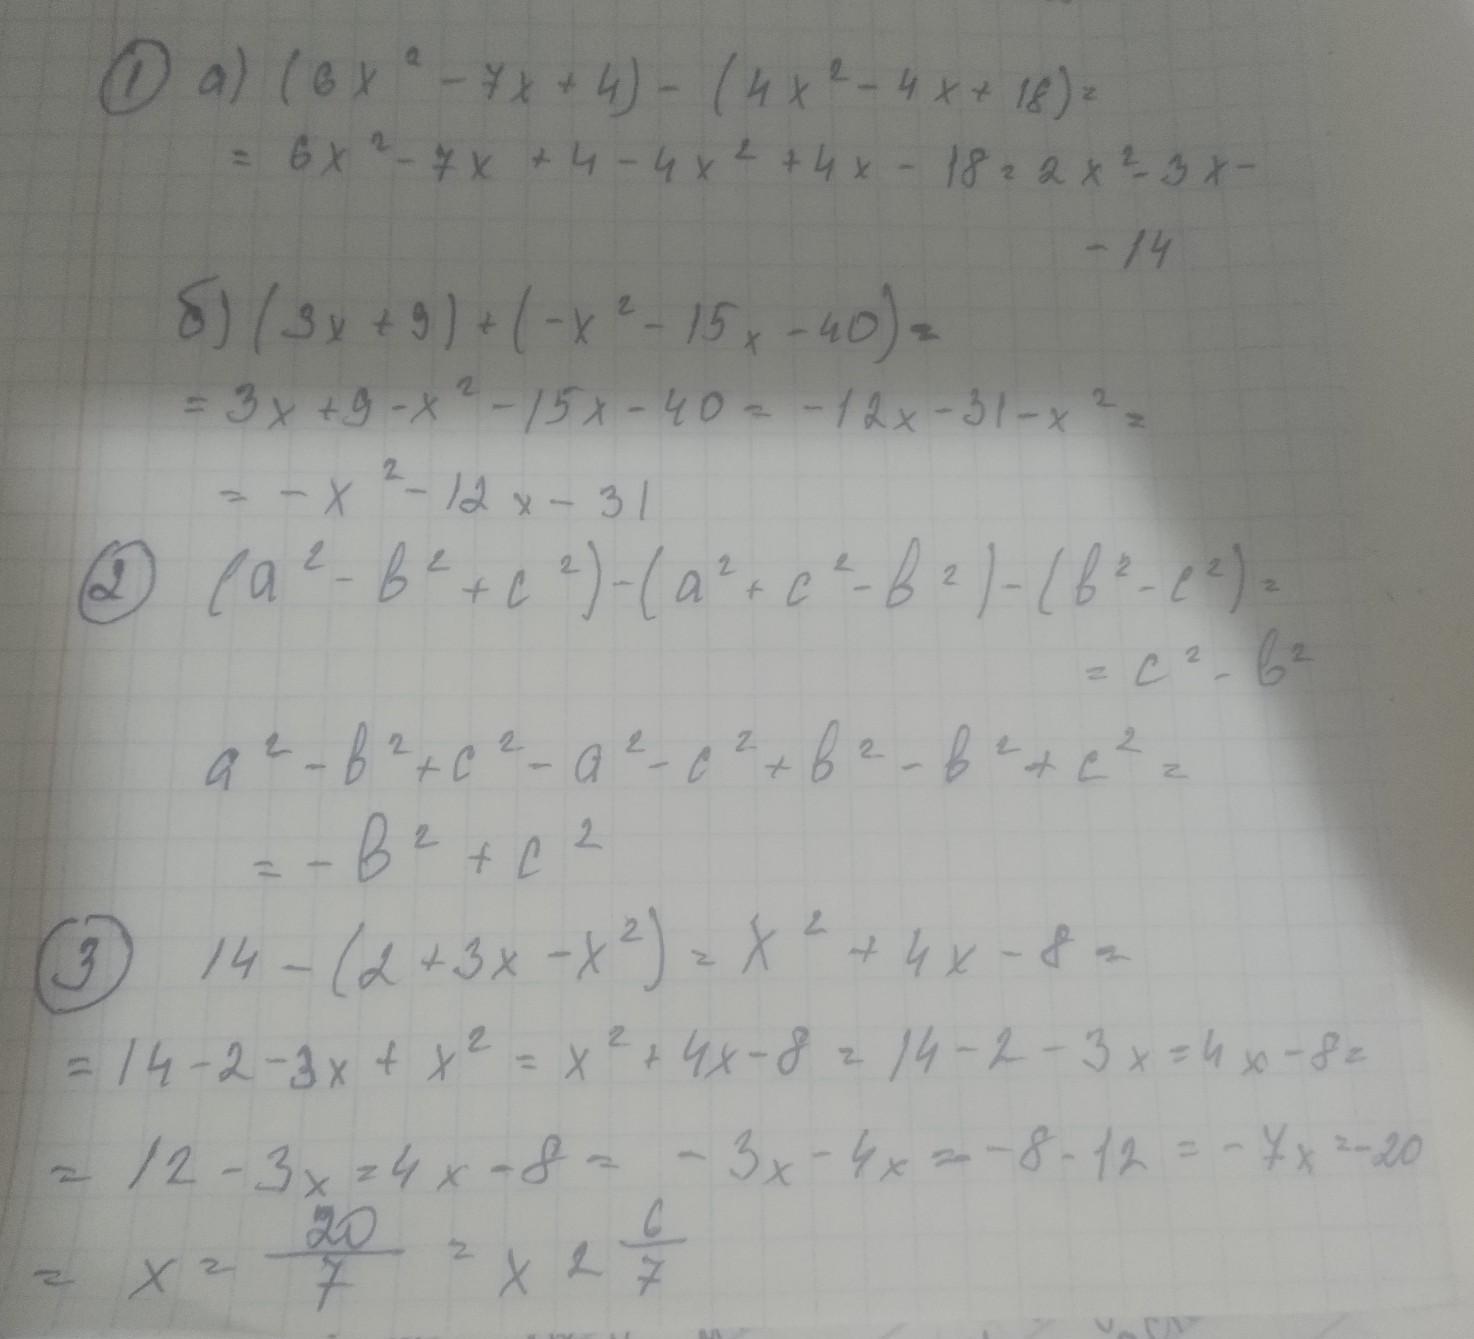 ① а) (6x² - 7x + 4) - (4x² - 4x + 18) =
= 6x² - 7x + 4 - 4x² + 4x - 18 = 2x² - 3x -
- 14
б) (3x + 9) + (-x² - 15x - 40) =
= 3x + 9 - x² - 15x - 40 = -12x - 31 - x² =
= -x² - 12x - 31
② (a² - b² + c²) - (a² + c² - b²) - (b² - c²) =
= c² - b²
a² - b² + c² - a² - c² + b² - b² + c² =
= - b² + c²
③ 14 - (2 + 3x - x²) = x² + 4x - 8 =
= 14 - 2 - 3x + x² = x² + 4x - 8 = 14 - 2 - 3x = 4x - 8 =
= 12 - 3x = 4x - 8 = - 3x - 4x = -8 - 12 = -7x = -20
= x = 20/7 = x 2 6/7